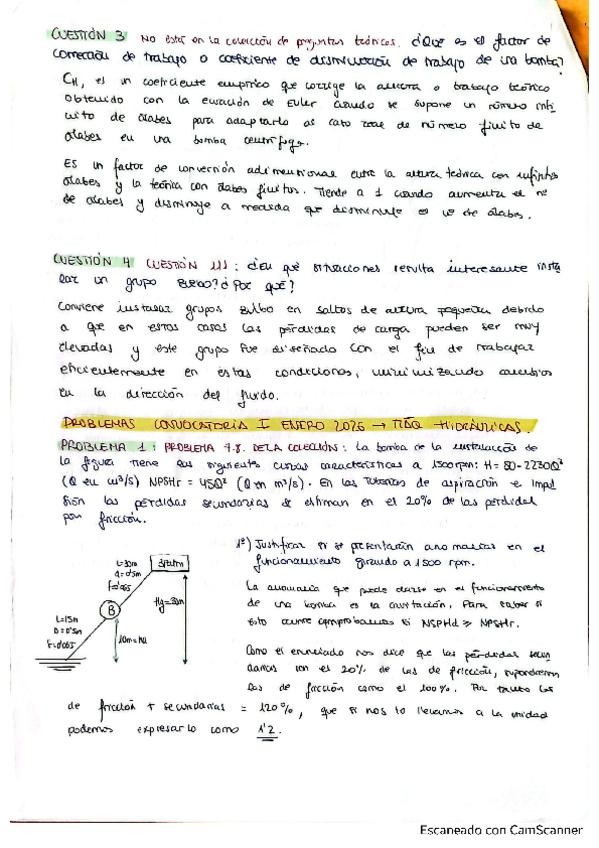 CUESTIÓN 3 No está en la colección de preguntas teóricas. ¿Que es el factor de
corrección de trabajo o coeficiente de disminución de trabajo de una bomba?
CH, es un coeficiente empírico que corrige la altura o trabajo teórico
obtenido con la ecuación de Euler cuando se supone un número infi
nito de álabes para adaptarlo al caso real de número finito de
álabes en una bomba centrífuga.
Es un factor de conversión adimensional entre la altura teórica con infinitos
álabes y la teórica con álabes finitos. Tiende a 1 cuando aumenta el nº
de álabes y disminuye a medida que disminuye el nº de álabes.
CUESTIÓN 4 CUESTIÓN 111: ¿En qué situaciones resulta interesante insta
lar un grupo BULBO? ¿Por qué?
Conviene instalar grupos Bulbo en saltos de altura pequeña debido
a que en estos casos las pérdidas de carga pueden ser muy
elevadas y este grupo fue diseñado con el fin de trabajar
eficientemente en estas condiciones, minimizando cambios
en la dirección del fluido.
PROBLEMAS CONVOCATORIA I ENERO 2026 → MÁQ HIDRÁULICAS.
PROBLEMA 1: PROBLEMA 7.8. DE LA COLECCIÓN: La bomba de la instalación de
la figura tiene las siguientes curvas características a 1500rpm: H = 80-2230Q²
(Q en m³/s) NPSHr = 45Q² (Q en m³/s). En las tuberías de aspiración e impul
sión las pérdidas secundarias se estiman en el 20% de las pérdidas
por fricción.
1º) Justificar si se presentarán anomalías en el
funcionamiento girando a 1500 rpm.
L=30m
f=0'065
B
Hg=30m
L=15m
D=0'5m
f=0'065
La anomalía que puede darse en el funcionamiento
de una bomba es la cavitación. Para saber si
esto ocurre comprobamos si NSPHd ≥ NPSHr.
Como el enunciado nos dice que las pérdidas secun
darias son el 20% de las de fricción, supondremos
las de fricción como el 100%. Por tanto las
de fricción + secundarias = 120%, que si nos lo llevamos a la unidad
podemos expresarlo como 1'2.
Escaneado con CamScanner